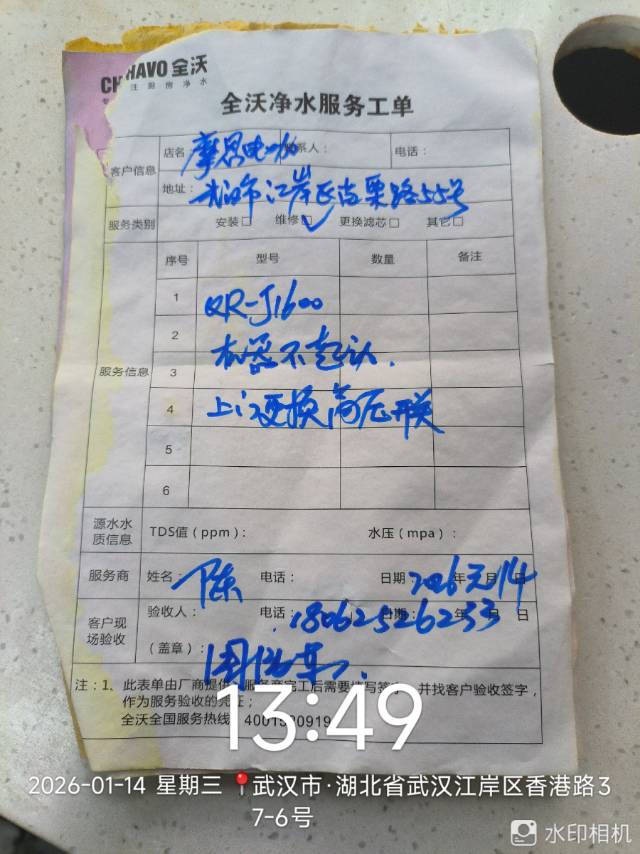 CHAVO 全沃
注厨房净水
全沃净水服务工单
客户信息 店名: 摩思电 联系人: 电话:
地址: 武汉市江岸区 路55号
服务类别 安装□ 维修□ 更换滤芯□ 其它□
序号 型号 数量 备注
1 QR-J1600
2 机器不起
服务信息 3
4 上门更换高压开关
5
6
源水水质信息 TDS值(ppm): 水压(mpa):
服务商 姓名: 陈 电话: 日期 2026年元月14日
客户现场验收 验收人: 电话: 18062526233 日期: 年 月 日
(盖章):
注:1、此表单由厂商提供,服务商完工后需要填写 并找客户验收签字,
作为服务验收的凭证;
全沃全国服务热线 4001 0919
13:49
2026-01-14 星期三 武汉市·湖北省武汉江岸区香港路3
7-6号
水印相机